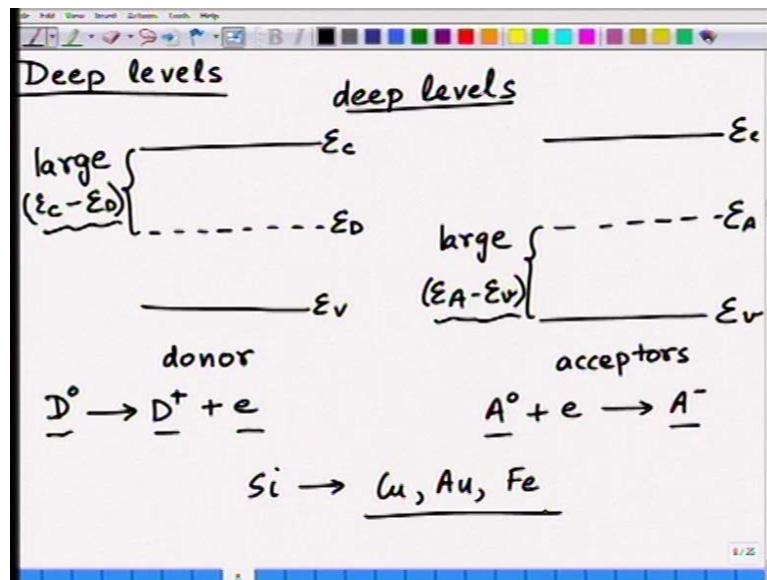 Edit View Insert Actions Tools Help
B I
Deep levels
deep levels
large
(Ec-ED)
Ec
ED
Ev
donor
D° → D⁺ + e
large
(EA-Ev)
Ec
EA
Ev
acceptors
A° + e → A⁻
Si → Cu, Au, Fe
8